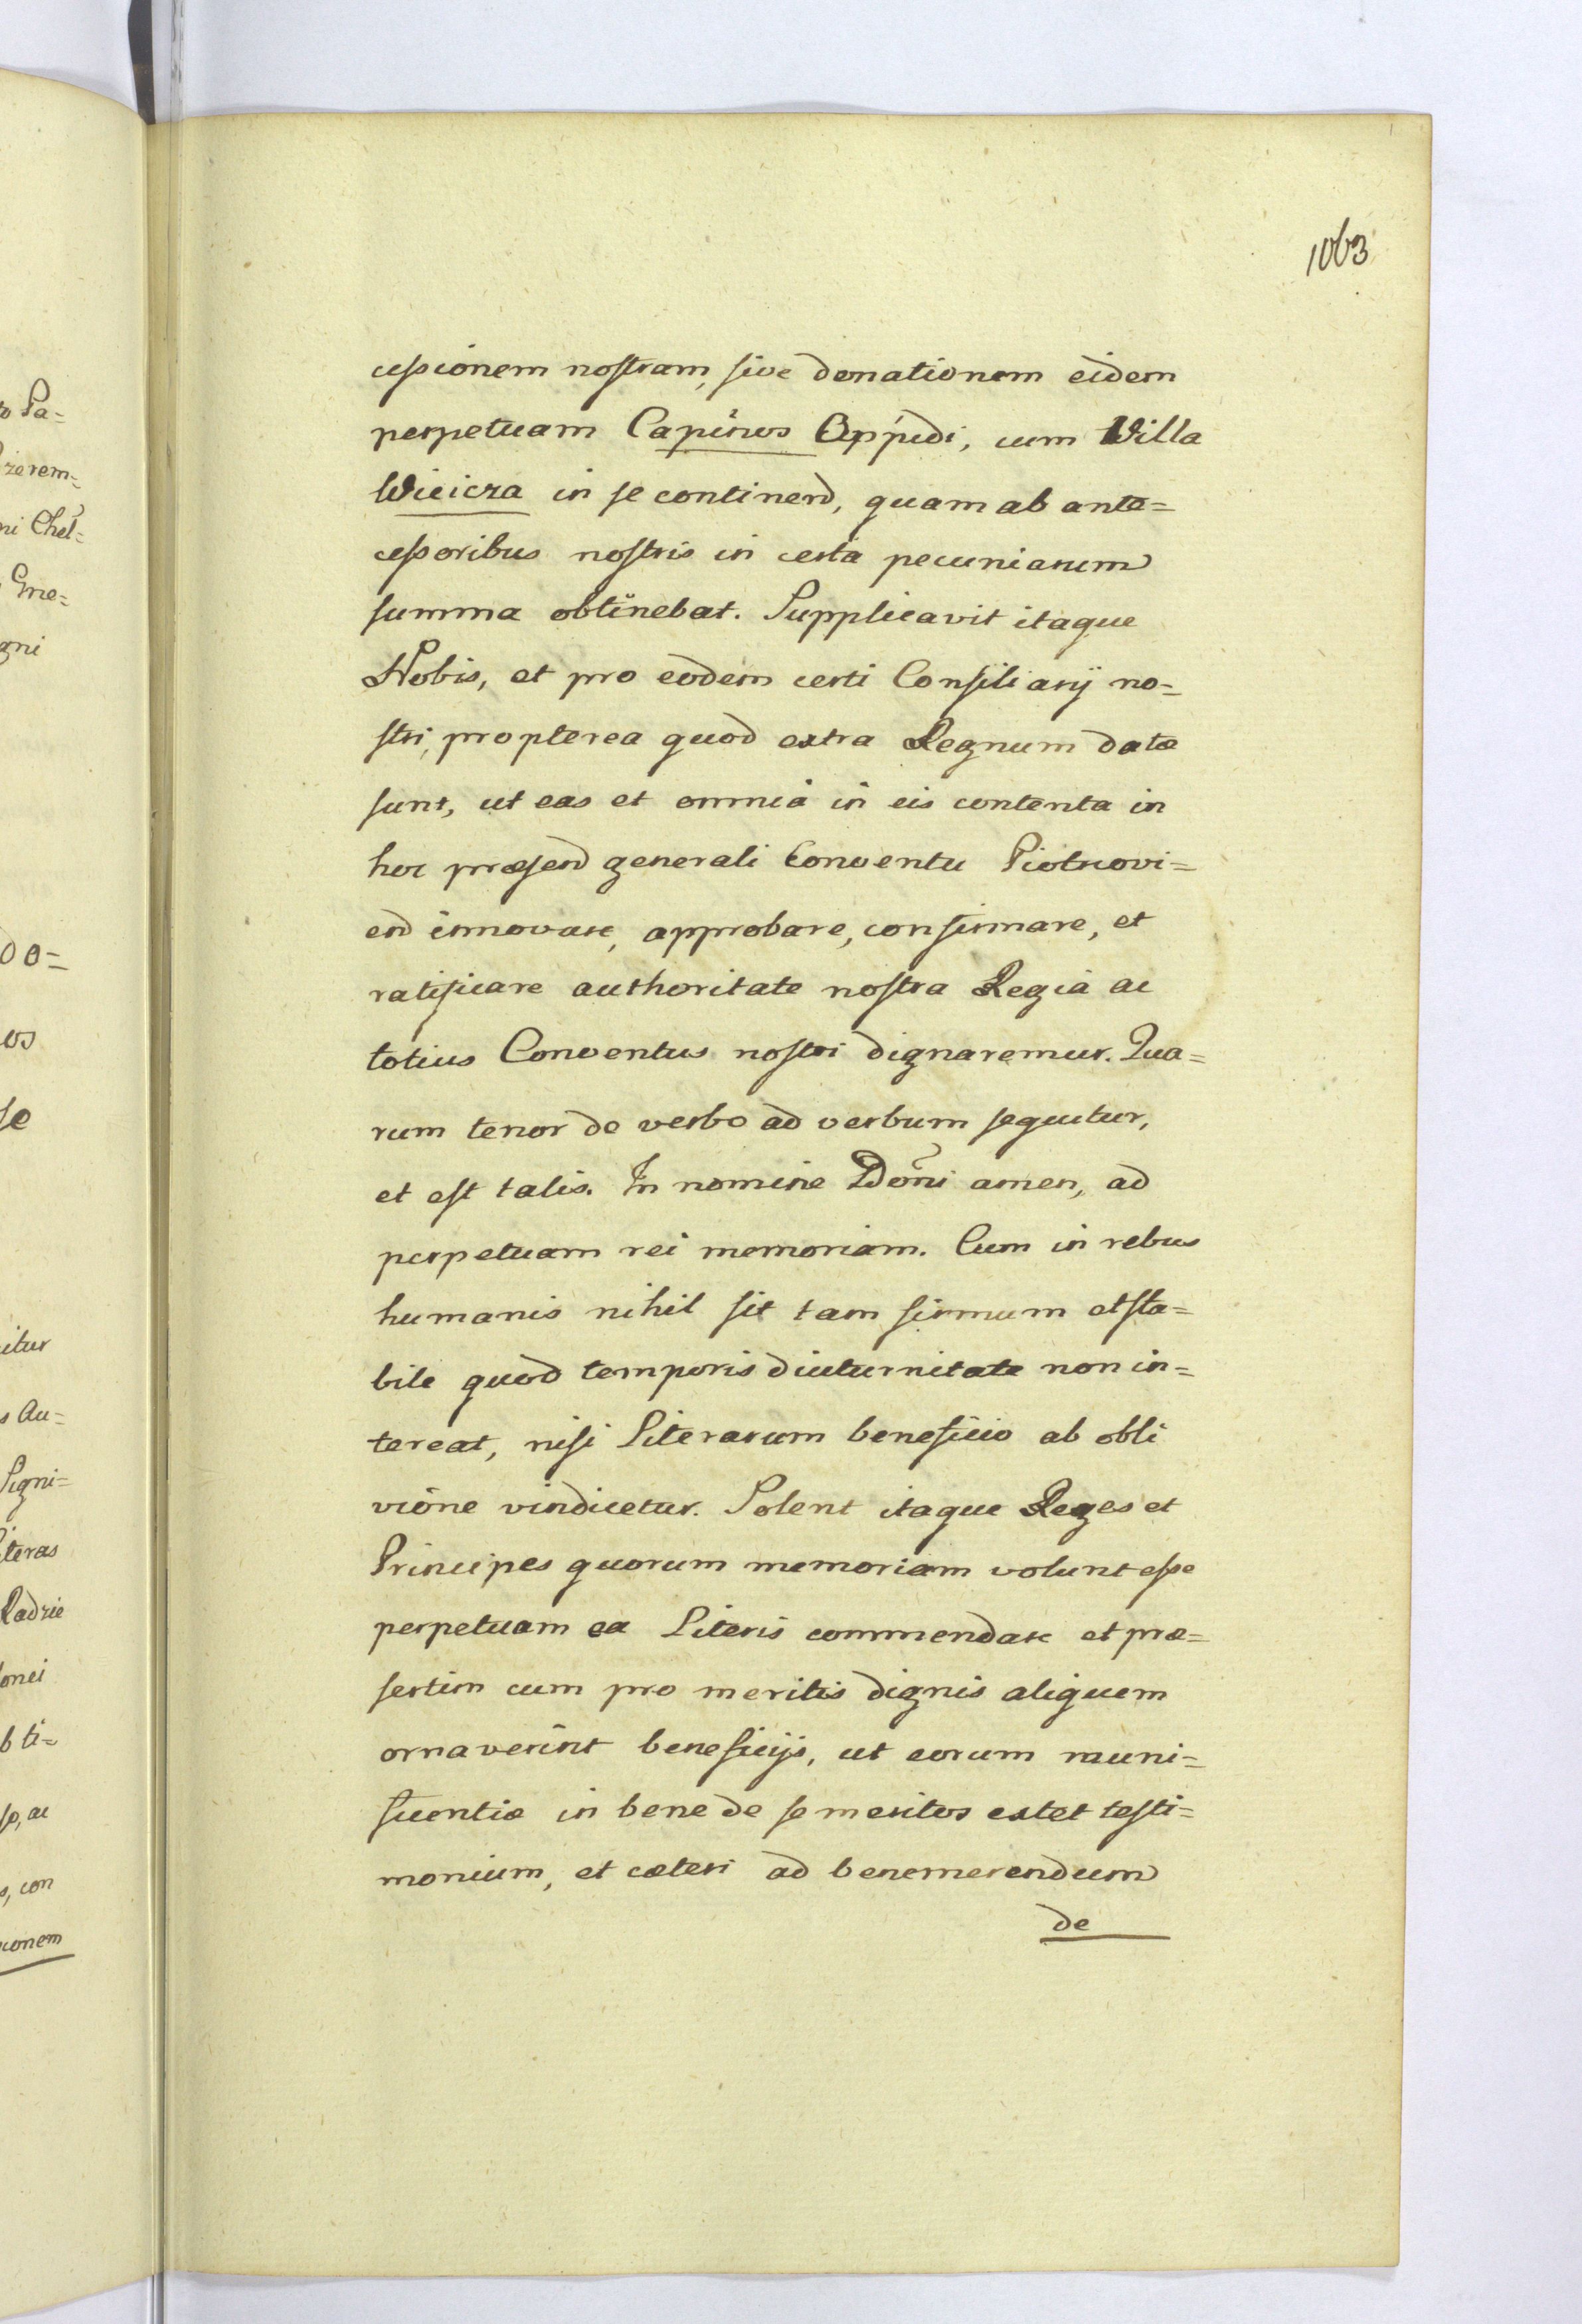 1063
cessionem nostram, sive donationem eidem
perpetuam Capinos Oppidi, cum Villa
Wieicza in se continend, quam ab ante=
cessoribus nostris in certa pecuniarum
summa obtinebat. Supplicavit itaque
Nobis, et pro eodem certi Consiliarij no=
stri, propterea quod extra Regnum datæ
sunt, ut eas et omnia in eis contenta in
hoc præsend generali Conventu Piotrcovi=
end innovare, approbare, confirmare, et
ratificare authoritate nostra Regia ac
totius Conventus nostri dignaremur. Qua=
rum tenor de verbo ad verbum sequitur,
et est talis. In nomine Doni amen, ad
perpetuam rei memoriam. Cum in rebus
humanis nihil sit tam firmum et sta=
bile quod temporis diuturnitate non in=
tereat, nisi Literarum beneficio ab obli
vione vindicetur. Solent itaque Reges et
Principes quorum memoriam volunt esse
perpetuam ea Literis commendare et præ=
sertim cum pro meritis dignis aliquem
ornaverint beneficijs, ut eorum muni=
ficentiæ in bene de se meritos extet testi=
monium, et cæteri ad benemerendum
de
to Pa=
rzerem=
ni Chel=
Gne=
gni
do=
os
se
itur
s Au=
Signi=
iteras
Radzie
onei
b ti=
so, ac
s, con
cionem